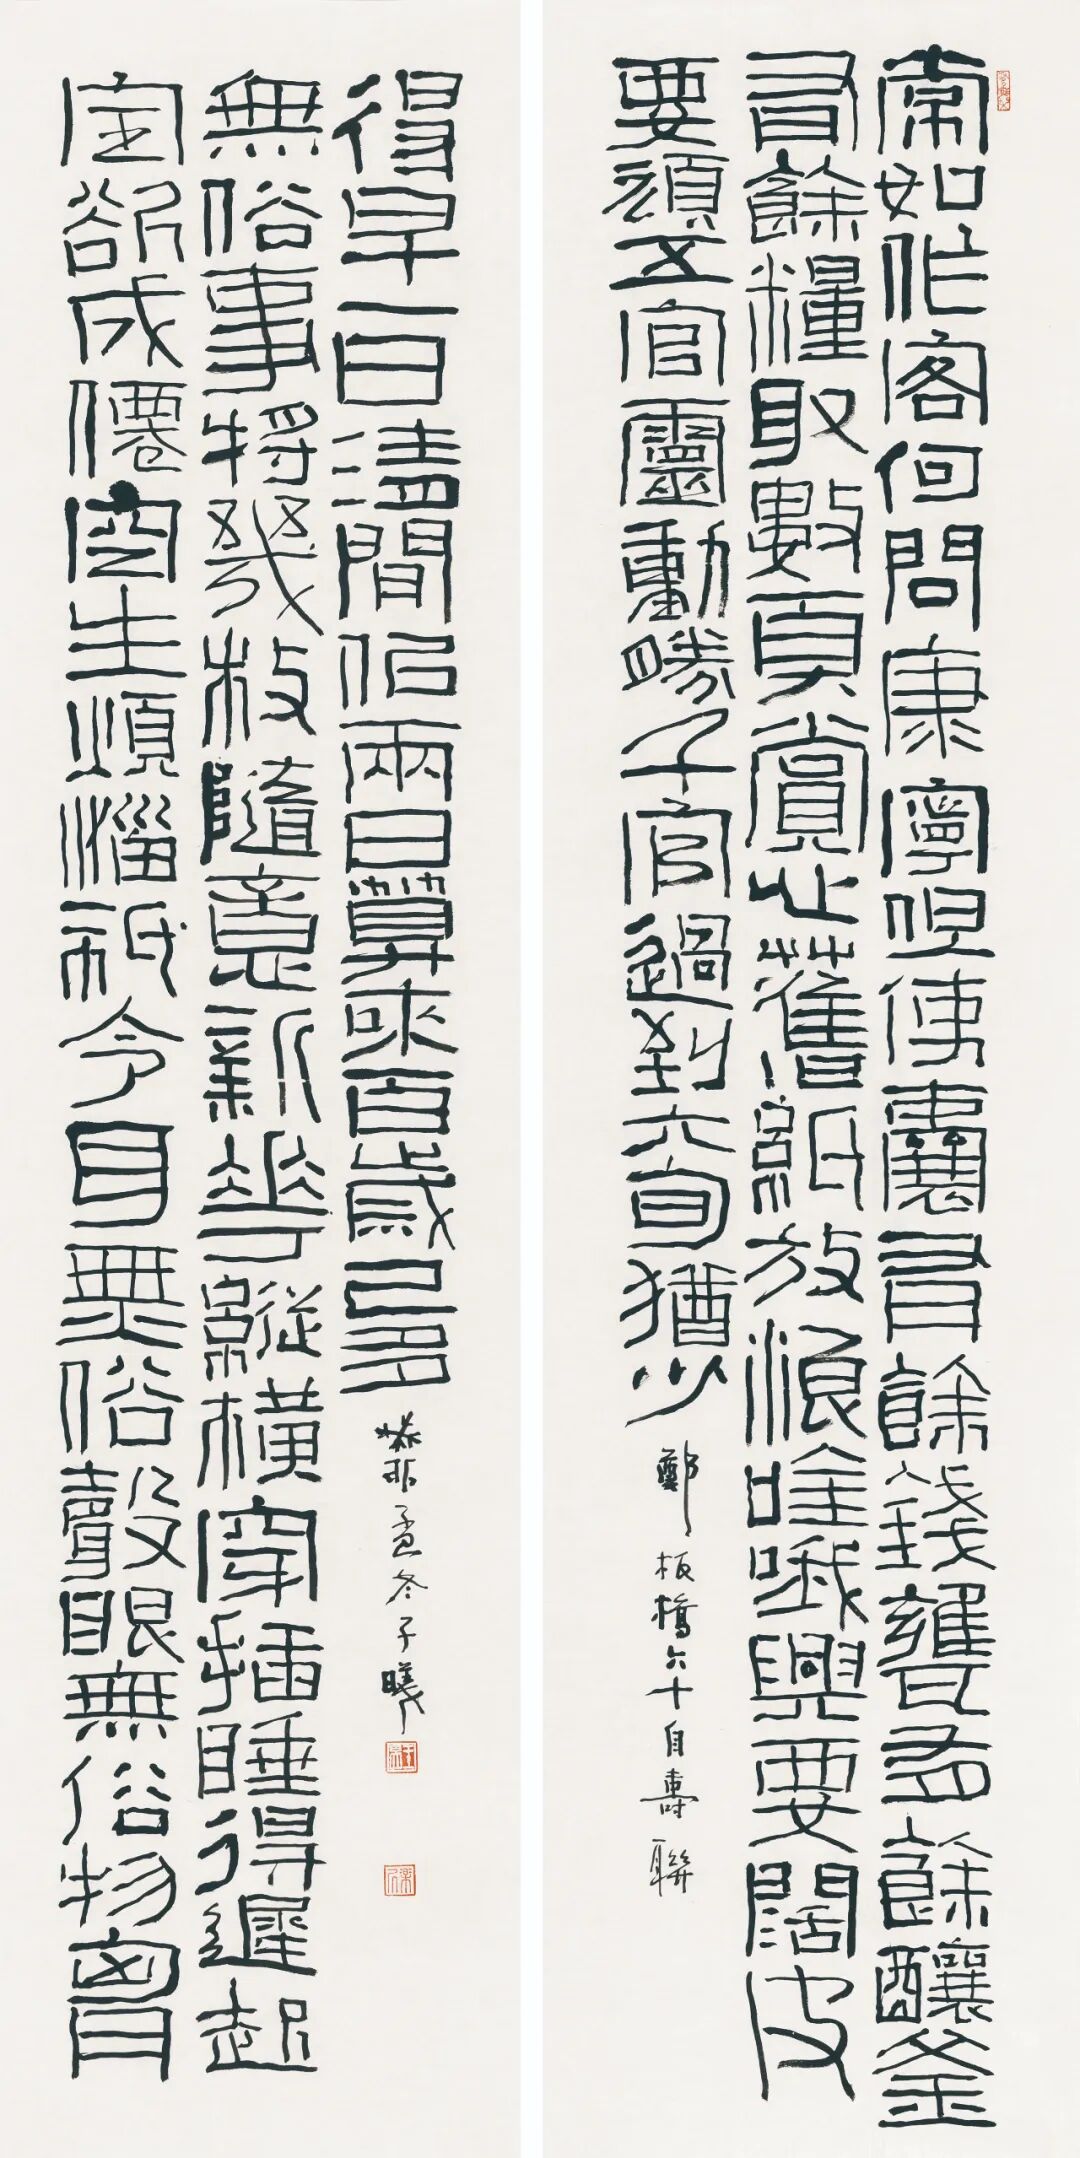 常如作客何問康寧但使囊有餘錢甕有餘釀釜
有餘糧取數頁賞心舊紙放浪唫哦興要闊皮
要頑五官靈動勝千官過到六旬猶少
鄭板橋六十自壽聯
定欲成僊空生煩惱祇令耳無俗聲眼無俗物胸
無俗事將幾枝隨意新華縱橫穿插睡得遲起
得早一日清閒似兩日算來百歲已多
孟冬子曦